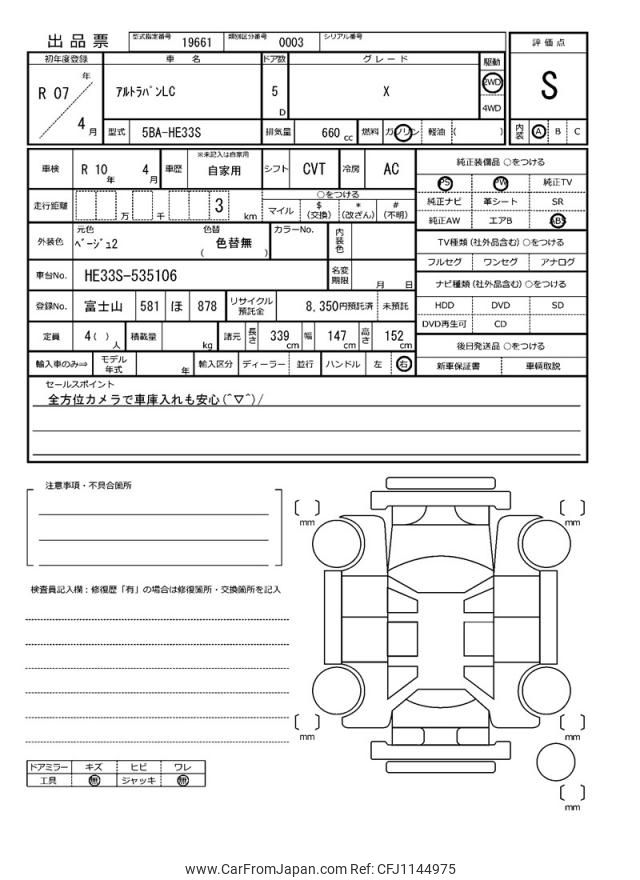 出品票 型式指定番号 19661 類別区分番号 0003 シリアル番号
評価点
S
内装 A B C
初年度登録 車名 ドア数 グレード 駆動
R 07 年 4 月
ｱﾙﾄﾗﾊﾟﾝLC 5 D X 2WD 4WD
型式 5BA-HE33S 排気量 660 cc 燃料 ガソリン 軽油 ( )
車検 R 10 年 4 月 車歴 ※未記入は自家用 自家用 シフト CVT 冷房 AC
純正装備品 ○をつける
PS PW 純正TV
純正ナビ 革シート SR
純正AW エアB ABS
走行距離 万 千 3 km
○をつける
マイル $ (交換) * (改ざん) # (不明)
TV種類 (社外品含む) ○をつける
フルセグ ワンセグ アナログ
外装色 元色 ﾍﾞｰｼﾞｭ2 色替 ( 色替無 ) カラーNo. 内装色
ナビ種類 (社外品含む) ○をつける
HDD DVD SD
DVD再生可 CD
車台No. HE33S-535106 名変期限 月 日
登録No. 富士山 581 ほ 878 リサイクル預託金 8,350円預託済 未預託
定員 4( ) 人 積載量 kg 諸元 長さ 339 cm 幅 147 cm 高さ 152 cm
後日発送品 ○をつける
新車保証書 車輌取説
輸入車のみ⇒ モデル年式 年 輸入区分 ディーラー 並行 ハンドル 左 右
セールスポイント
全方位カメラで車庫入れも安心(^▽^)/
注意事項・不具合箇所
検査員記入欄：修復歴「有」の場合は修復箇所・交換箇所を記入
mm
mm
mm
mm
mm
ドアミラー キズ ヒビ ワレ
工具 無 ジャッキ 無
www.CarFromJapan.com Ref: CFJ1144975